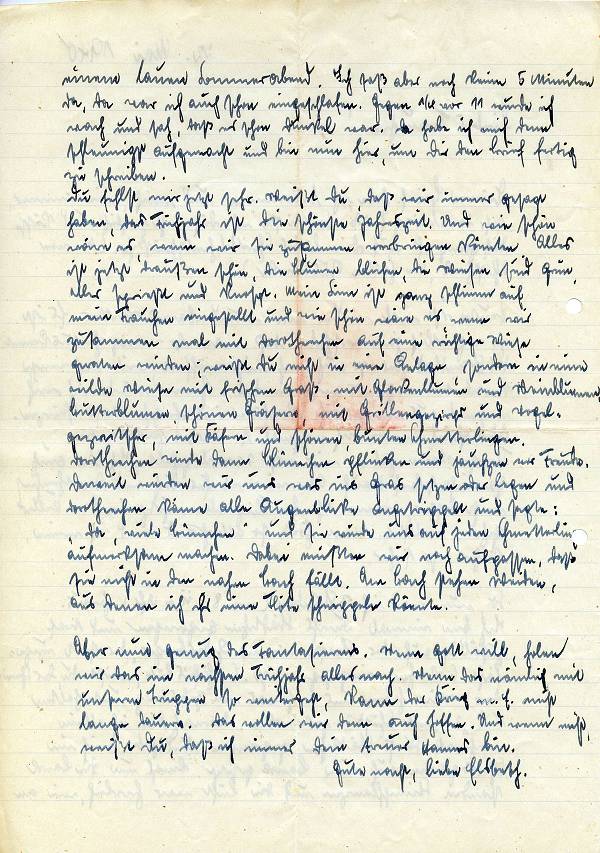 einem lauen Sommerabend. Ich saß aber noch keine 5 Minuten
da, da war ich auch schon eingeschlafen. Gegen 1/4 vor 11 wurde ich
wach und sah, daß es schon dunkel war. Da habe ich mich dann
schleunigst aufgemacht und bin nun hier, um Dir den Brief fertig
zu schreiben.
Du fehlst mir jetzt sehr. Weißt Du, daß wir immer gesagt
haben, das Frühjahr ist die schönste Jahreszeit. Und wie schön
wäre es, wenn wir sie zusammen verbringen könnten. Alles
ist jetzt draußen schön, die Blumen blühen, die Wiesen sind grün,
alles sprießt und knospt. Mein Sinn ist ganz schlimm auf
mein Frauchen eingestellt und wie schön wäre es wenn wir
zusammen mal mit Dorothechen auf eine richtige Wiese
geraten würden; weißt Du nicht in eine Anlage sondern in eine
wilde Wiese mit frischem Gras, mit Glockenblumen und Weinblumen,
Butterblumen, schönen Gräsern, mit Grillengezirp und Vogel-
gezwitscher, mit Käfern und schönen, bunten Schmetterlingen.
Dorothechen würde dann Blümchen pflücken und jauchzen vor Freude.
Derweil würden wir uns was ins Gras setzen oder legen und
Dorothechen käme alle Augenblicke angetrappelt und sagte:
"da, viele Blümchen" und sie würde uns auf jeden Schmetterling
aufmerksam machen. Dabei müßten wir noch aufpassen, daß
sie nicht in den nahen Bach fällt. Am Bach stehen Weiden,
aus denen ich ihr eine Flöte schnippeln könnte.
Aber nun genug des Fantasierens. Wenn Gott will, holen
wir das im nächsten Frühjahr alles nach. Wenn das nämlich mit
unseren Truppen so weitergeht, kann der Krieg m. E. nicht
lange dauern. Das wollen wir denn auch hoffen. Und wenn nicht,
weißt Du, daß ich immer Dein treuer Hannes bin.
Gute Nacht, liebe Elsbeth.